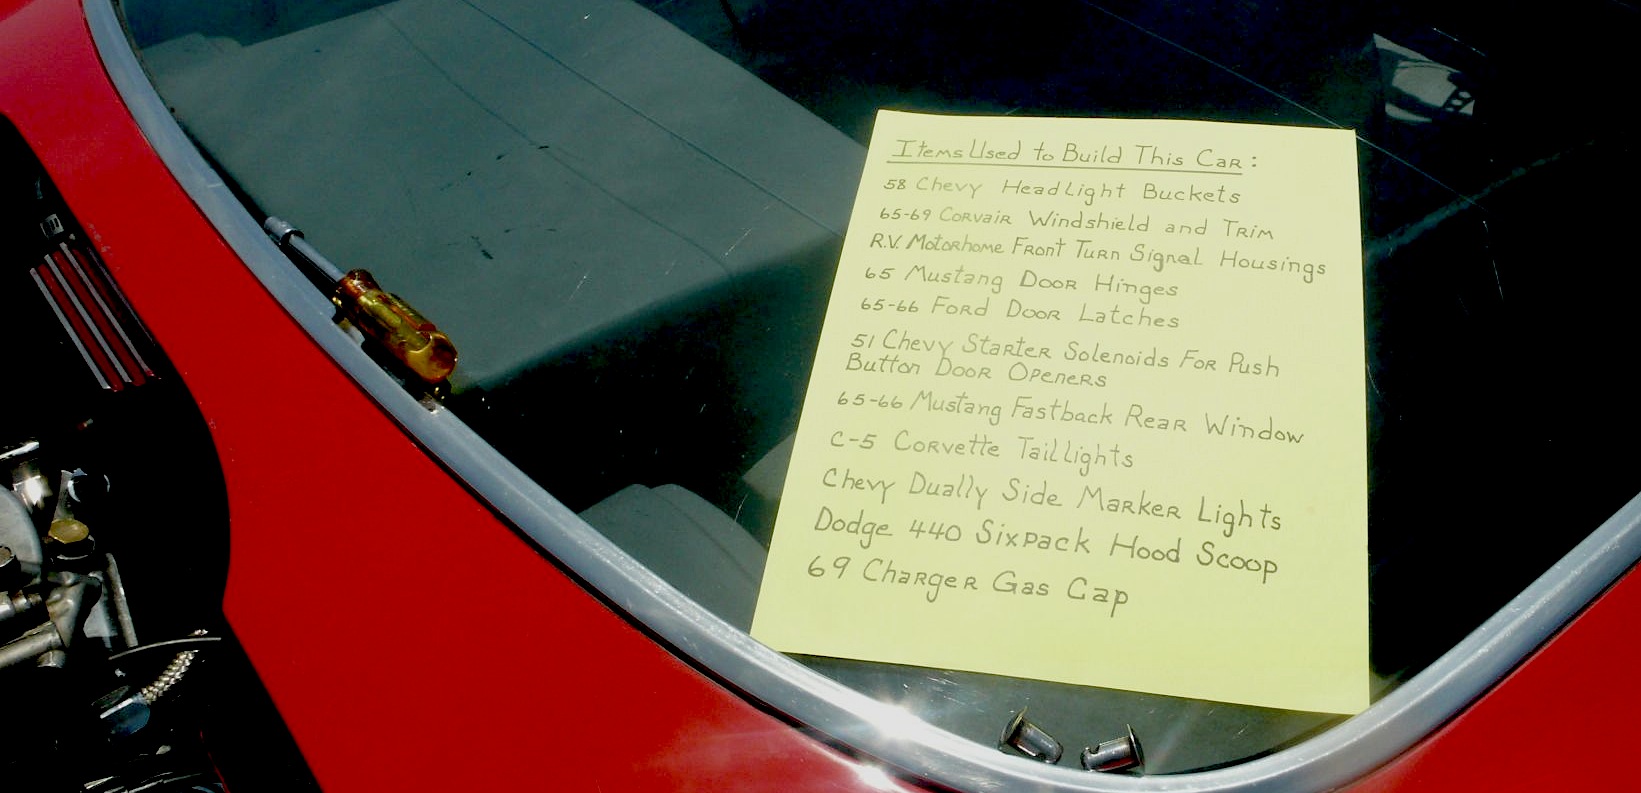 Items Used to Build This Car:
58 Chevy Headlight Buckets
65-69 Corvair Windshield and Trim
R.V. Motorhome Front Turn Signal Housings
65 Mustang Door Hinges
65-66 Ford Door Latches
51 Chevy Starter Solenoids For Push
Button Door Openers
65-66 Mustang Fastback Rear Window
C-5 Corvette Taillights
Chevy Dually Side Marker Lights
Dodge 440 Sixpack Hood Scoop
69 Charger Gas Cap